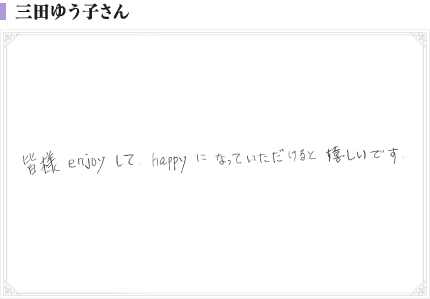 三田ゆう子さん
皆様 enjoy して happy に なっていただけると 嬉しいです.